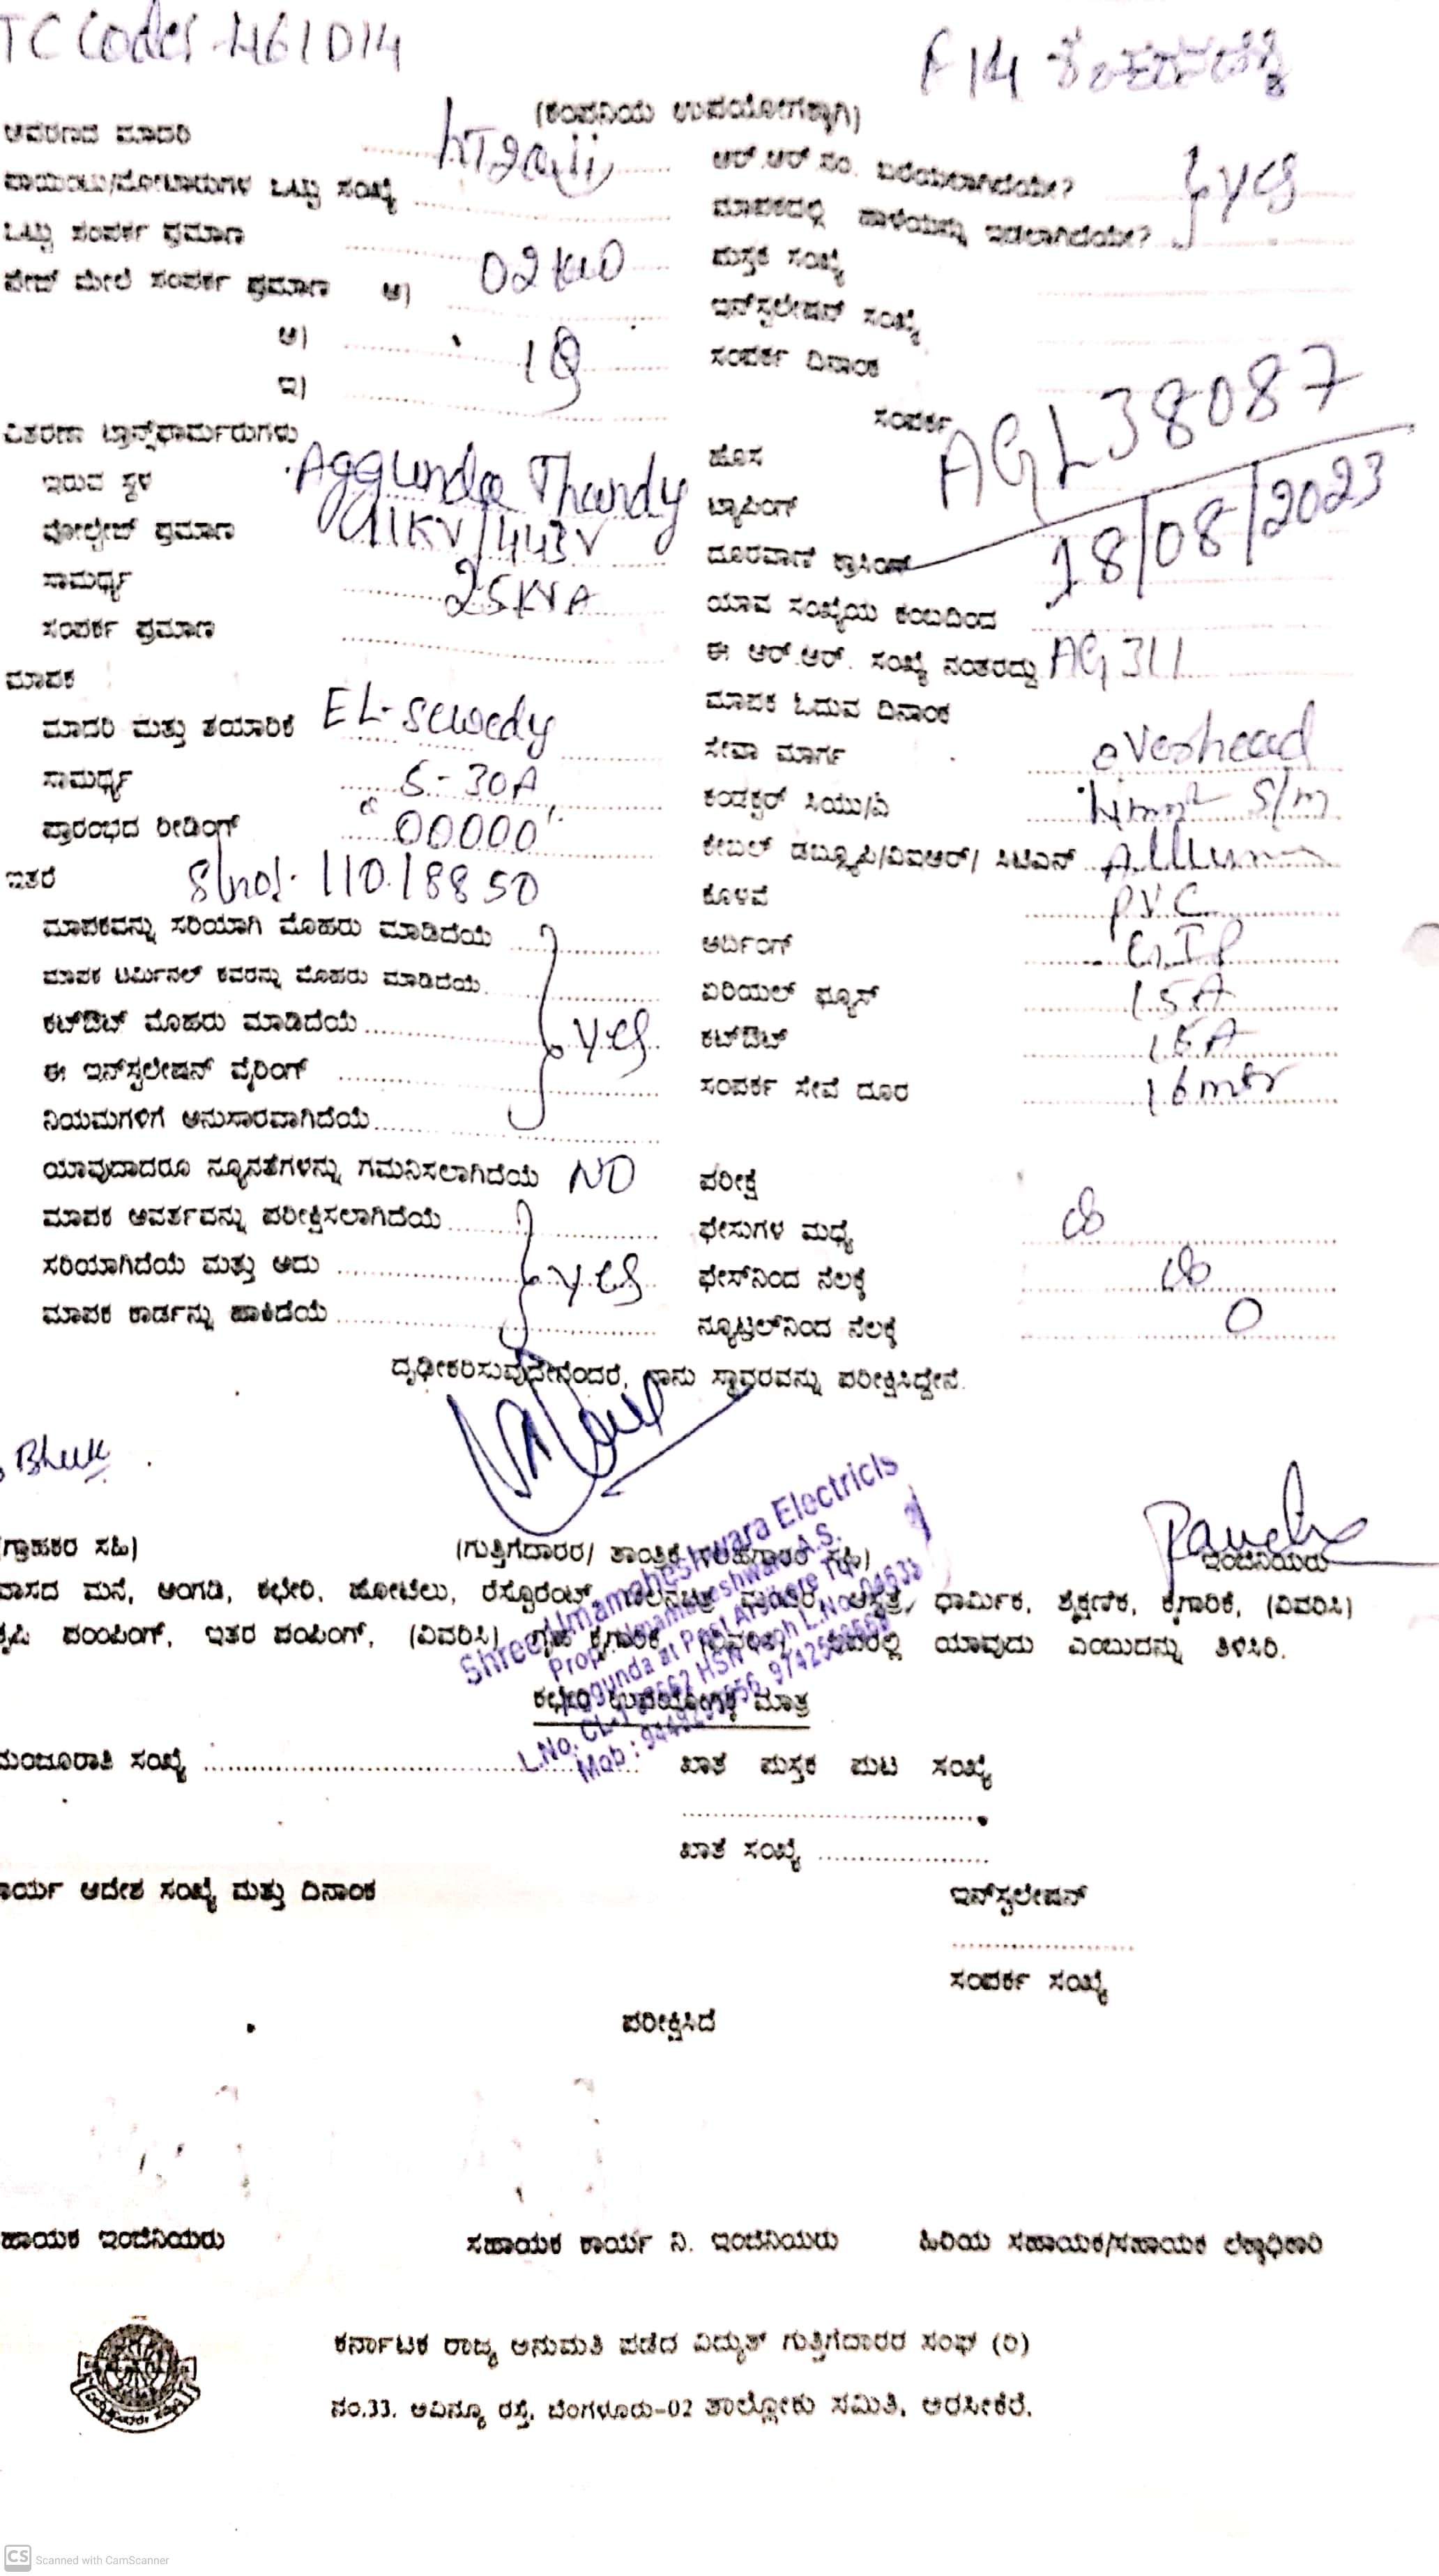 TC Code:- 461D14
F14
(ಕಂಪನಿಯ ಉಪಯೋಗಕ್ಕಾಗಿ)
ಆವರಣದ ಮಾದರಿ LT2a,ii
ಪಾಯಿಂಟು/ಮೋಟಾರುಗಳ ಒಟ್ಟು ಸಂಖ್ಯೆ
ಒಟ್ಟು ಸಂಪರ್ಕ ಪ್ರಮಾಣ
ಪೇಜ್ ಮೇಲೆ ಸಂಪರ್ಕ ಪ್ರಮಾಣ ಅ) 02KW
ಆ) 1Φ
ಇ)
ವಿತರಣಾ ಟ್ರಾನ್ಸ್‌ಫಾರ್ಮರುಗಳು
ಇರುವ ಸ್ಥಳ Aggunda Thandy
ವೋಲ್ಟೇಜ್ ಪ್ರಮಾಣ 11KV/443V
ಸಾಮರ್ಥ್ಯ 25KVA
ಸಂಪರ್ಕ ಪ್ರಮಾಣ
ಮಾಪಕ
ಮಾದರಿ ಮತ್ತು ತಯಾರಿಕೆ EL-sewedy
ಸಾಮರ್ಥ್ಯ 5-30A
ಪ್ರಾರಂಭದ ರೀಡಿಂಗ್ "00000"
ಇತರೆ Slno:- 11018850
ಮಾಪಕವನ್ನು ಸರಿಯಾಗಿ ಮೊಹರು ಮಾಡಿದೆಯೆ
ಮಾಪಕ ಟರ್ಮಿನಲ್ ಕವರನ್ನು ಮೊಹರು ಮಾಡಿದೆಯೆ
ಕಟ್‌ಔಟ್ ಮೊಹರು ಮಾಡಿದೆಯೆ yes
ಈ ಇನ್‌ಸ್ಟಲೇಷನ್ ವೈರಿಂಗ್
ನಿಯಮಗಳಿಗೆ ಅನುಸಾರವಾಗಿದೆಯೆ
ಯಾವುದಾದರೂ ನ್ಯೂನತೆಗಳನ್ನು ಗಮನಿಸಲಾಗಿದೆಯೆ NO
ಮಾಪಕ ಆವರ್ತವನ್ನು ಪರೀಕ್ಷಿಸಲಾಗಿದೆಯೆ
ಸರಿಯಾಗಿದೆಯೆ ಮತ್ತು ಅದು yes
ಮಾಪಕ ಕಾರ್ಡನ್ನು ಹಾಕಿದೆಯೆ
ಆರ್.ಆರ್.ಸಂ. ಬರೆಯಲಾಗಿದೆಯೇ? yes
ಮಾಪಕದಲ್ಲಿ ಹಾಳೆಯನ್ನು ಇಡಲಾಗಿದೆಯೇ?
ಪುಸ್ತಕ ಸಂಖ್ಯೆ
ಇನ್‌ಸ್ಟಲೇಷನ್ ಸಂಖ್ಯೆ
ಸಂಪರ್ಕ ದಿನಾಂಕ
ಸಂಪರ್ಕ AGL38087
ಹೊಸ
ಟ್ಯಾಪಿಂಗ್
ದೂರವಾಣಿ ಕ್ರಾಸಿಂಗ್ 18/08/2023
ಯಾವ ಸಂಖ್ಯೆಯ ಕಂಬದಿಂದ
ಈ ಆರ್.ಆರ್. ಸಂಖ್ಯೆ ನಂತರದ್ದು AG311
ಮಾಪಕ ಓದುವ ದಿನಾಂಕ
ಸೇವಾ ಮಾರ್ಗ overhead
ಕಂಡಕ್ಟರ್ ಸಿಯು/ಎ 4mm² S/m
ಕೇಬಲ್ ಡಬ್ಲ್ಯೂಪಿ/ವಿಐಆರ್/ ಸಿಟಿಎಸ್
ಕೊಳವೆ PVC
ಅರ್ದಿಂಗ್ G.I.P
ಏರಿಯಲ್ ಫ್ಯೂಸ್ 15A
ಕಟ್‌ಔಟ್ 15A
ಸಂಪರ್ಕ ಸೇವೆ ದೂರ 16mtr
ಪರೀಕ್ಷೆ
ಫೇಸುಗಳ ಮಧ್ಯೆ ∞
ಫೇಸ್‌ನಿಂದ ನೆಲಕ್ಕೆ ∞
ನ್ಯೂಟ್ರಲ್‌ನಿಂದ ನೆಲಕ್ಕೆ 0
ದೃಢೀಕರಿಸುವುದೇನೆಂದರೆ, ನಾನು ಸ್ಥಾವರವನ್ನು ಪರೀಕ್ಷಿಸಿದ್ದೇನೆ.
(ಗ್ರಾಹಕರ ಸಹಿ) (ಗುತ್ತಿಗೆದಾರರ/ ತಾಂತ್ರಿಕ ಸಲಹೆಗಾರರ ಸಹಿ) ಇಂಜಿನಿಯರು
ವಾಸದ ಮನೆ, ಅಂಗಡಿ, ಕಛೇರಿ, ಹೋಟೆಲು, ರೆಸ್ಟೊರೆಂಟ್, ಚಲನಚಿತ್ರ ಮಂದಿರ, ಆಸ್ಪತ್ರೆ, ಧಾರ್ಮಿಕ, ಶೈಕ್ಷಣಿಕ, ಕೈಗಾರಿಕೆ, (ವಿವರಿಸಿ)
ಕೃಷಿ ಪಂಂಪಿಂಗ್, ಇತರ ಪಂಪಿಂಗ್, (ವಿವರಿಸಿ) ಗೃಹ ಕೈಗಾರಿಕೆ (ವಿವರಿಸಿ) ಇವರಲ್ಲಿ ಯಾವುದು ಎಂಬುದನ್ನು ತಿಳಿಸಿರಿ.
Shree Umamaheshwara Electricls
ಕಛೇರಿ ಉಪಯೋಗಕ್ಕೆ ಮಾತ್ರ
ಮಂಜೂರಾತಿ ಸಂಖ್ಯೆ ಖಾತೆ ಪುಸ್ತಕ ಪುಟ ಸಂಖ್ಯೆ
ಖಾತೆ ಸಂಖ್ಯೆ
ಾರ್ಯ ಆದೇಶ ಸಂಖ್ಯೆ ಮತ್ತು ದಿನಾಂಕ
ಇನ್‌ಸ್ಟಲೇಷನ್
ಸಂಪರ್ಕ ಸಂಖ್ಯೆ
ಪರೀಕ್ಷಿಸಿದೆ
ಹಾಯಕ ಇಂಜಿನಿಯರು ಸಹಾಯಕ ಕಾರ್ಯ ನಿ. ಇಂಜಿನಿಯರು ಹಿರಿಯ ಸಹಾಯಕ/ಸಹಾಯಕ ಲೆಕ್ಕಾಧಿಕಾರಿ
ಕರ್ನಾಟಕ ರಾಜ್ಯ ಅನುಮತಿ ಪಡೆದ ವಿದ್ಯುತ್ ಗುತ್ತಿಗೆದಾರರ ಸಂಘ (ರಿ)
ನಂ.33, ಅವಿನ್ಯೂ ರಸ್ತೆ, ಬೆಂಗಳೂರು-02 ತಾಲ್ಲೋಕು ಸಮಿತಿ, ಅರಸೀಕೆರೆ.
CS Scanned with CamScanner